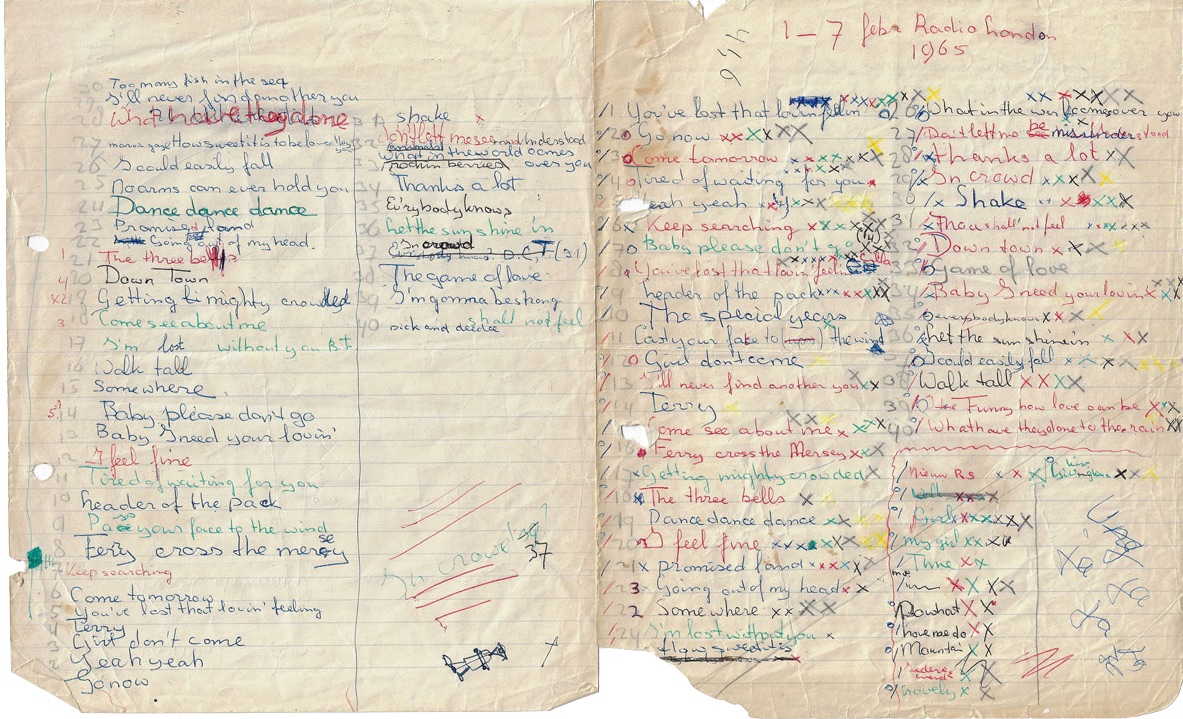 30 Too many fish in the sea
29 I'll never find another you
28 What have they done
27 marvin gaye How sweet it is to be loved by you
26 I could easily fall
25 No arms can ever hold you
24 Dance dance dance
23 Promised land
22 Going out of my head.
1 21 The three bells
4 20 Down Town
x2 19 Getting mighty crowded
3 18 Come see about me
17 I'm lost without you B.F.
16 Walk tall
15 Somewhere
5? 14 Baby please don't go
13 Baby I need your lovin'
12 I feel fine
11 Tired of waiting for you
10 Leader of the pack
9 your face to the wind
8 Ferry cross the mersey
7 Keep searching
6 Come tomorrow
5 You've lost that lovin' feeling
4 Terry
3 Girl don't come
2 Yeah yeah
Go now
shake x
don't let me misunderstood
what in the world comes over you
rockin berries
34 Thanks a lot
35 Ev'rybody knows
36 Let the sun shine in
37 In crowd D.C.T (31)
38 The game of love
39 I'm gonna be strong
40 dick and deedee shall not feel
In crowd
37
1 – 7 febr Radio London
1965
1 You've lost that lovin feelin
2 Go now xx xx
3 Come tomorrow
4 Tired of waiting for you
5 Yeah yeah
6 Keep searching
7 Baby please don't go
8 You've lost that lovin feelin Cilla
9 Leader of the pack
10 The special years
11 Cast your fate to the wind
12 Girl don't come
13 I'll never find another you xx
14 Terry
15 Come see about me
16 Ferry cross the Mersey
17 Getting mighty crowded
18 The three bells
19 Dance dance dance
20 I feel fine
21 promised land
23 Going out of my head
22 Somewhere
24 I'm lost without you
How sweet it is
26 What in the world comes over you
27 Don't let me be misunderstood
28 Thanks a lot
29 In crowd
30 Shake
31 Thou shall not feel
32 Down town
33 Game of love
34 Baby I need your lovin
35 everybody knows
36 Let the sunshine in
37 I could easily fall
38 Walk tall
39 Funny how love can be
40 What have they done to the rain
Nieuw Pl.s
Girl
my girl
Time
Do what
love me do
Mountain
lovely